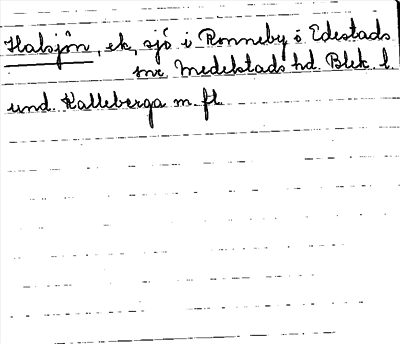 Halsjön, ek, sjö i Ronneby o Edestads
snr. Medelstads hd. Blek. l.
und. Kalleberga m. fl.